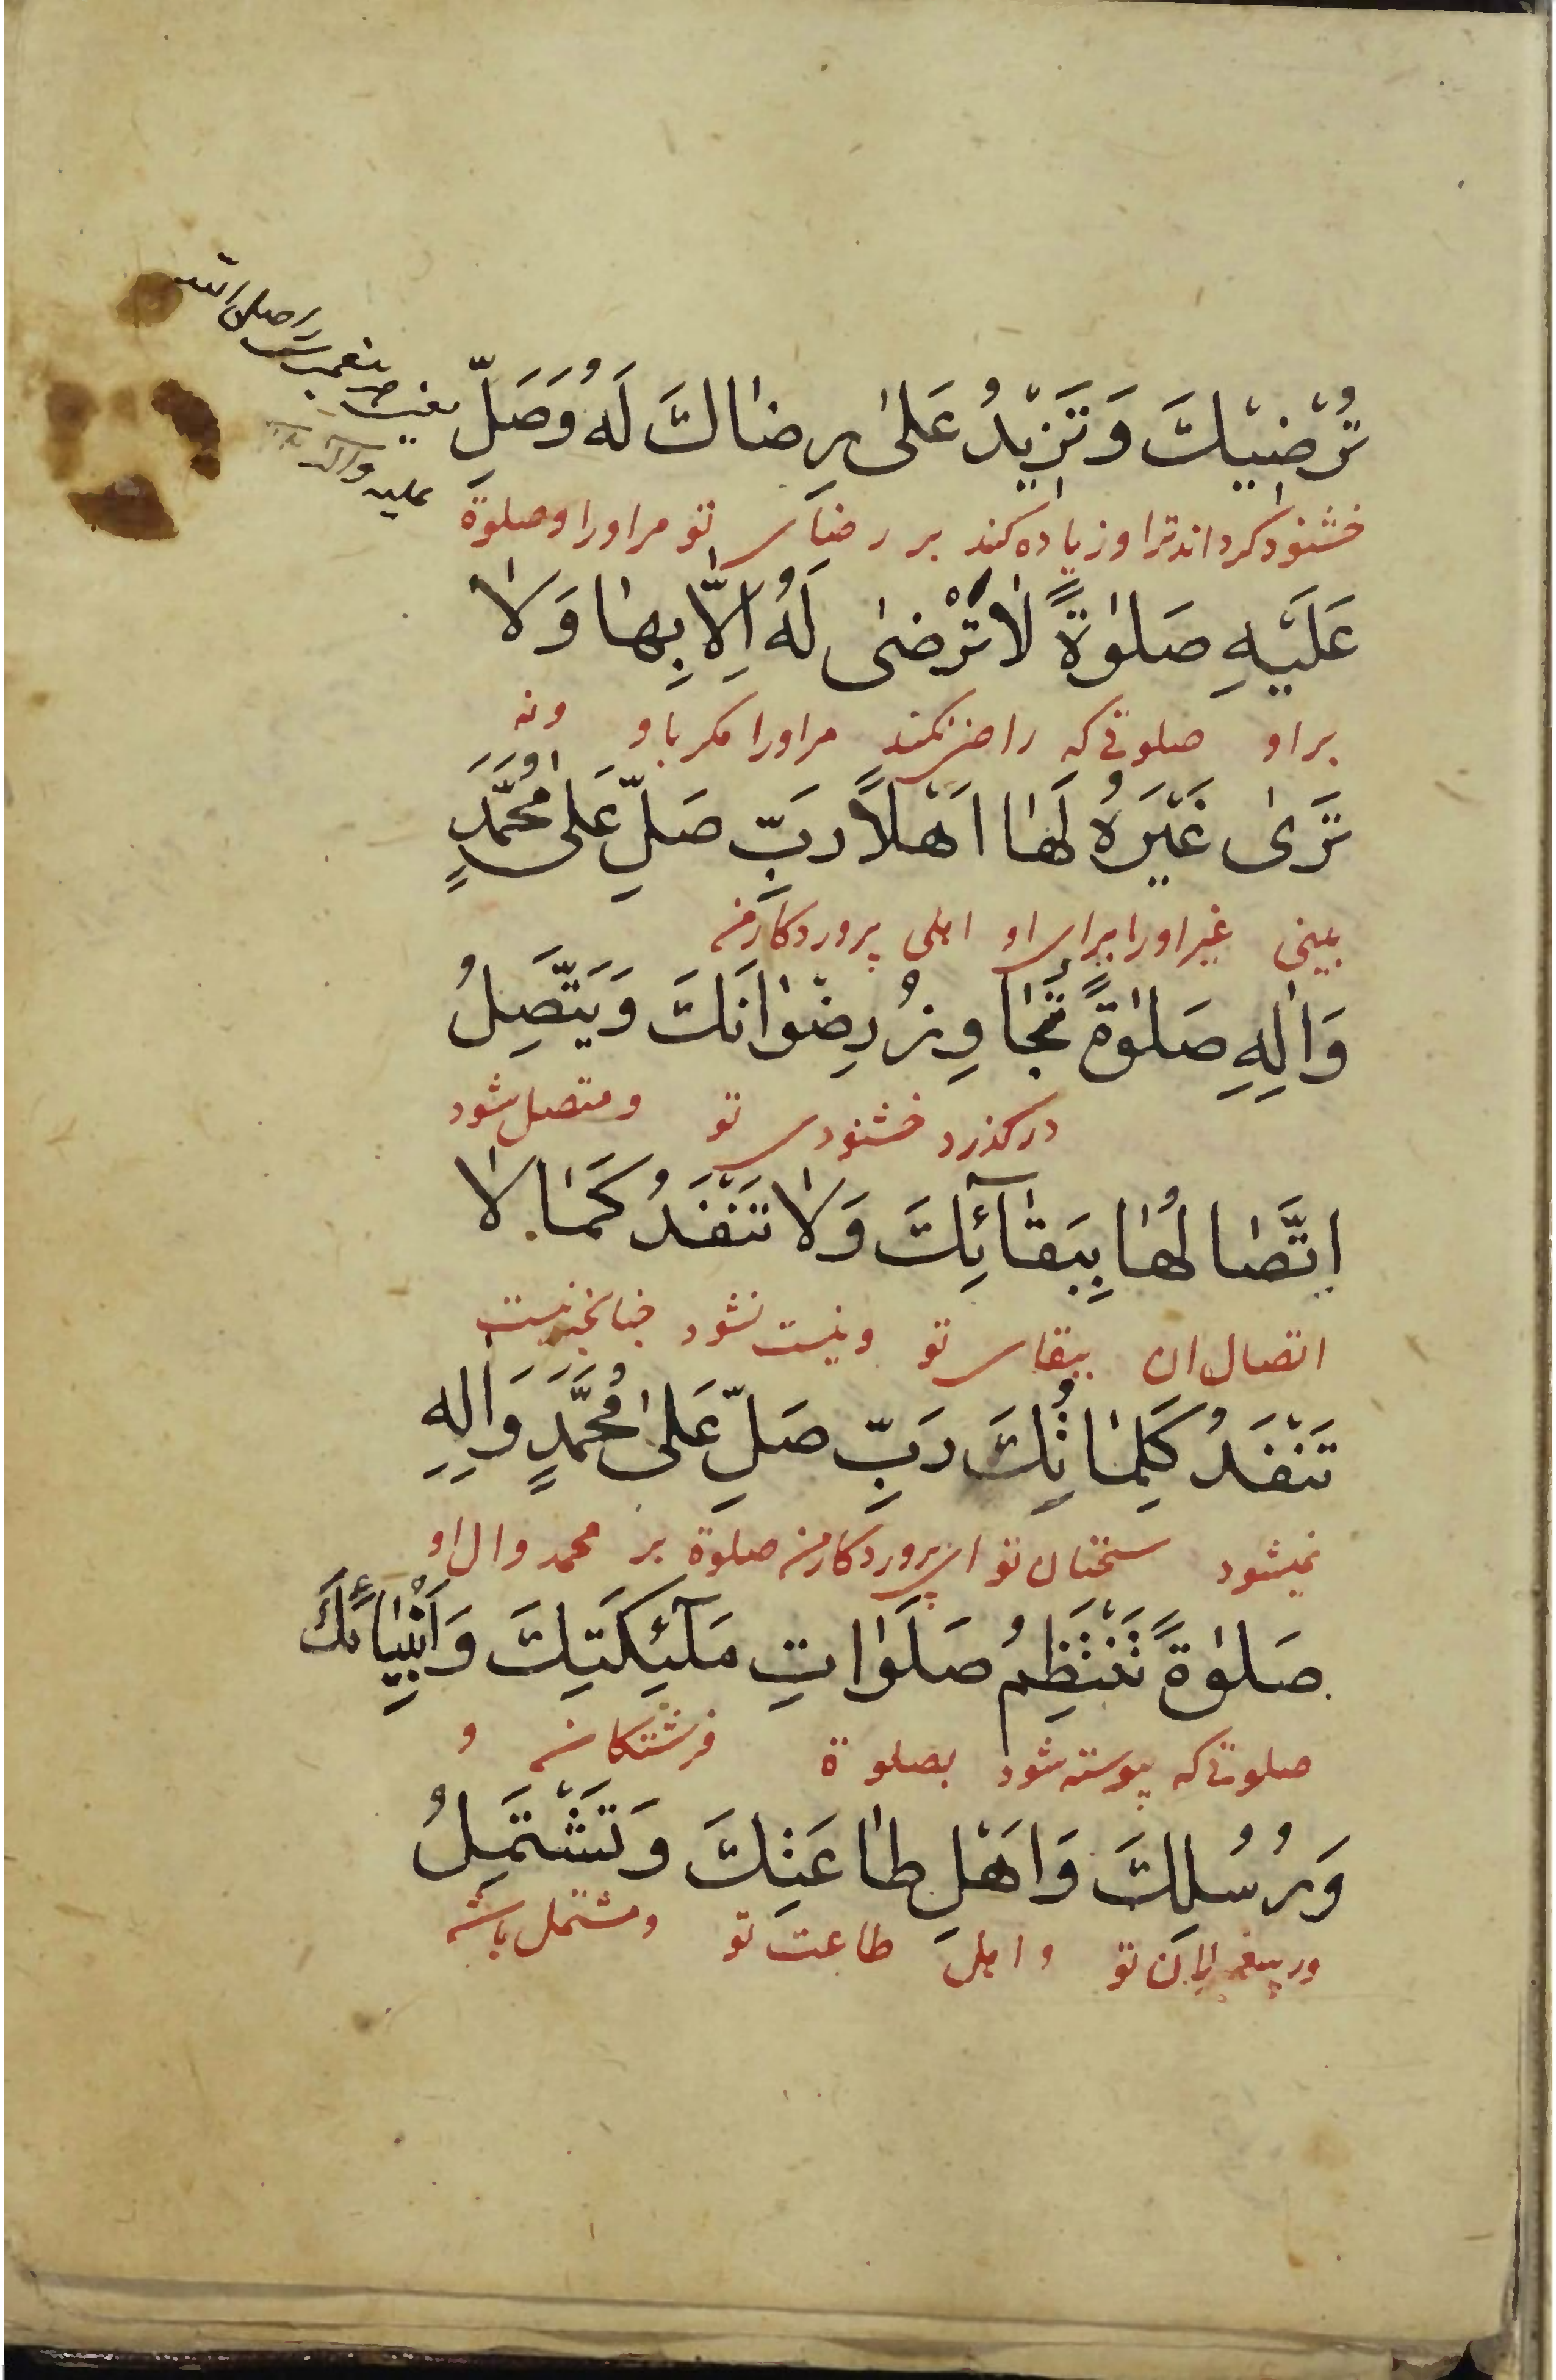 تُرْضيْكَ وَتَزِيْدُ عَلىٰ رِضٰاكَ لَهُ وَصَلِّ
یعنی پیغمبر را صلی الله
علیه وآله
خشنود کرداند ترا و زیاده کند بر رضای تو مر اورا و صلوة
عَلَيْهِ صَلوٰةً لاٰتَرْضىٰ لَهُ اِلّٰا بِهٰا وَلاٰ
بر او صلوتی که راضی نکند مر اورا مکر باو ونه
تَرىٰ غَيْرَهُ لَهٰا اَهْلاً رَبِّ صَلِّ عَلىٰ مُحَمَّدٍ
بینی غیر اورا برای او اهلی پروردکار من
وَاٰلِهِ صَلوٰةً تُجٰاوِزُ رِضْوٰانَكَ وَيَتَّصِلُ
درکذرد خشنودی تو و متصل شود
اِتَّصٰالُهٰا بِبَقٰآئِكَ وَلاٰ تَنْفَدُ كَمٰا لاٰ
اتصال ان ببقای تو و نیست نشود چنانچه نیست
تَنْفَدُ كَلِمٰاتُكَ رَبِّ صَلِّ عَلىٰ مُحَمَّدٍ وَاٰلِهِ
نمیشود سخنان تو ای پروردکار من صلوة بر محمد وال او
صَلوٰةً تَنْتَظِمُ صَلَوٰاتِ مَلٰٓئِكَتِكَ وَاَنْبِيٰائِكَ
صلوتی که پیوسته شود بصلوة فرشتکان و
وَرُسُلِكَ وَاَهْلِ طٰاعَتِكَ وَتَشْتَمِلُ
و پیغمبران تو و اهل طاعت تو و مشتمل باشد